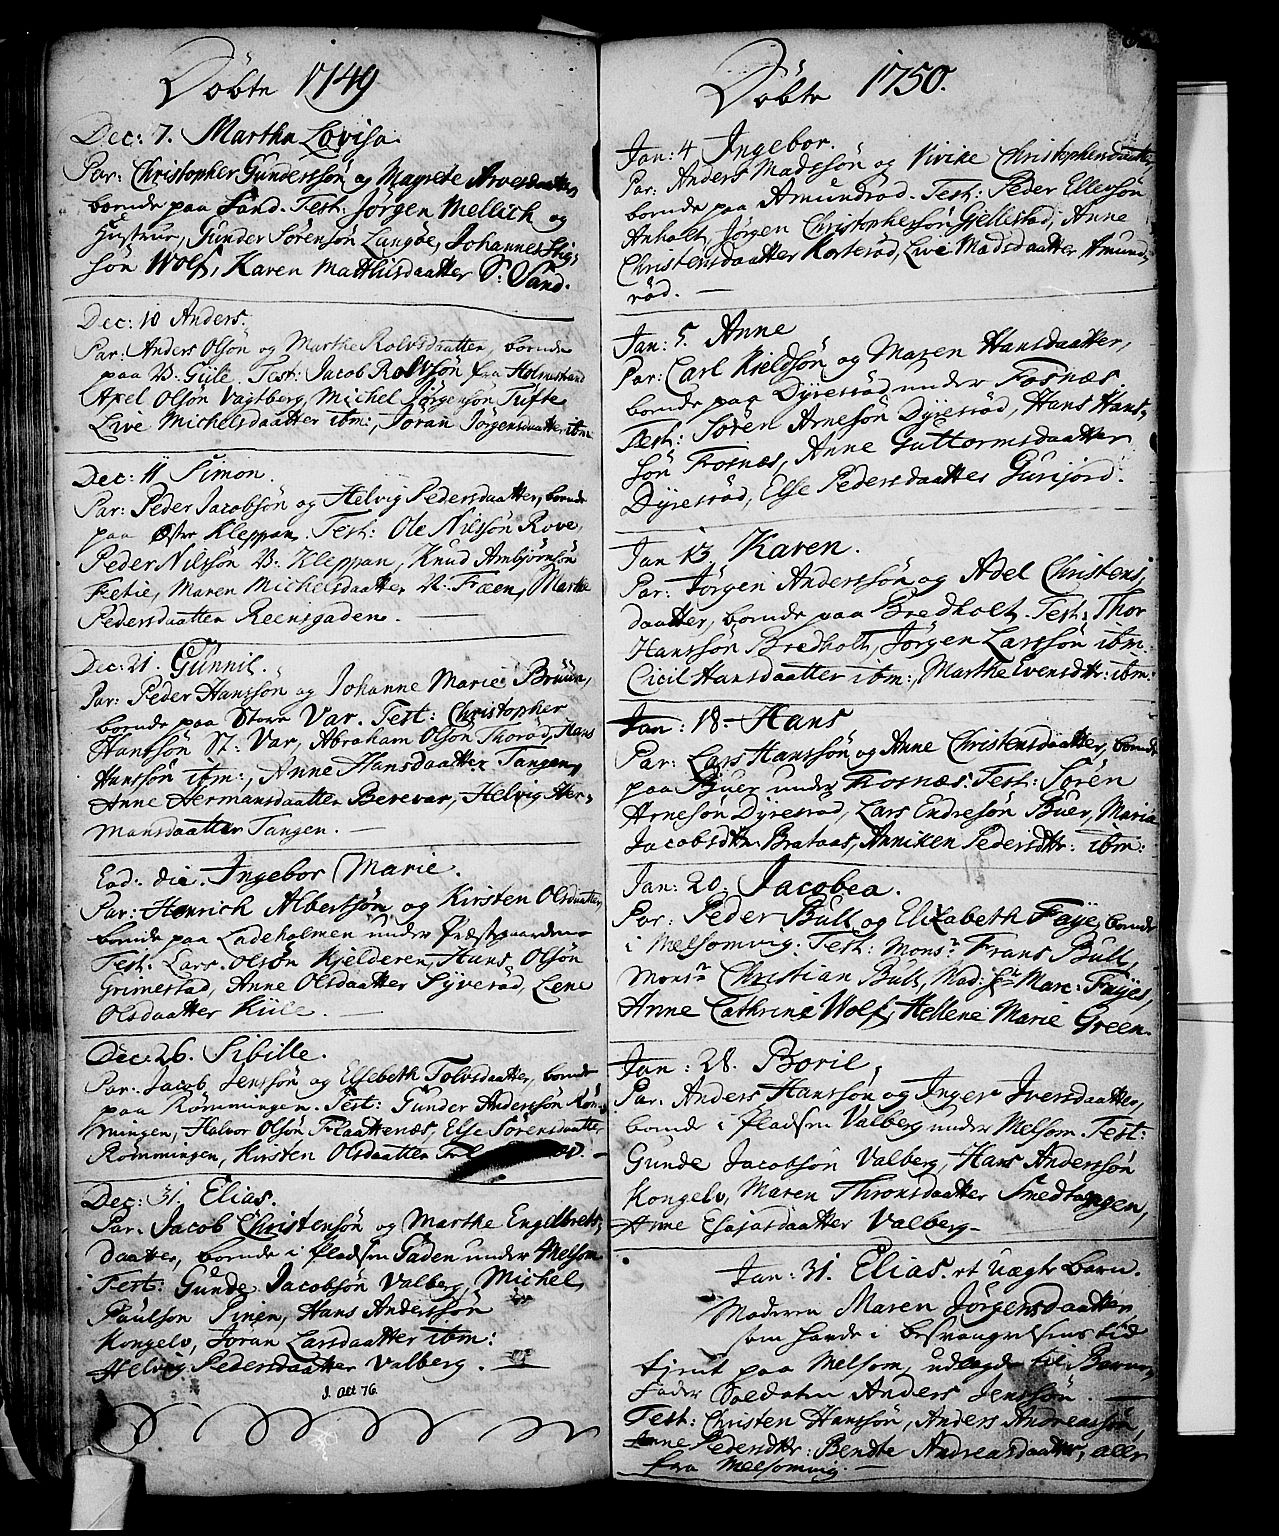 Döbte 1749
Dec: 7. Martha Lovisa.
Par: Christopher Gundersön og Magrete Arvesdaatter,
boende paa Sand. Test: Jörgen Mellich og
Hustrue, Gunder Sörensön Langöe, Johannes Stig-
sön Wolf, Karen Matthisdaatter S: Sand.
Dec: 10 Anders.
Par: Anders Olsön og Marthe Rolvsdaatter, boende
paa V: Giile. Test: Jacob Rolvsön fra Holmestrand
Axel Olsön Vagtberg, Michel Jörgensön Tufte,
Live Michelsdaatter ibm:, Joran Jörgensdaatter ibm
Dec: 11 Simon.
Par: Peder Jacobsön og Helvig Pedersdaatter, boende
paa Östre Kleppan. Test: Ole Nilssön Rove,
Peder Nilssön V: Kleppan, Knud Ambjörnsön
Fetie, Maren Michelsdaatter V: Fæen, Marthe
Pedersdaatter Reensgaden.
Dec: 21. Günnil.
Par: Peder Hanssön og Johanne Marie Brüün,
boende paa Store Var. Test: Christopher
Hanssön St: Var, Abraham Olsön Thoröd, Hans
Hanssön ibm:, Anne Hansdaatter Tangen,
Anne Hermansdaatter Berevar, Helvig Her-
mansdaatter Tangen.
Eod: die. Ingebor Marie.
Par: Henrich Albertsön og Kirsten Olsdaatter,
boende paa Ladeholmen under Præstgaarden
Test: Lars Olsön Kjelderen, Hans Olsön
Grimestad, Anne Olsdaatter Syveröd, Lene
Olsdaatter Kiile.
Dec: 26. Sibille.
Par: Jacob Jenssön og Elsebeth Tolvsdaatter, boende
paa Römmingen. Test: Gunder Anderssön Röm-
mingen, Halvor Olsön Flaattenæs, Else Sörensdaatter
Römmingen, Kirsten Olsdaatter
Dec: 31. Elias.
Par: Jacob Christensön og Marthe Engelbrets-
daatter, boende i Pladsen Gaden under Melsom
Test: Gunde Jacobsön Valberg, Michel
Paulsön Pinen, Hans Anderssön
Kongelv, Joran Larsdaatter ibm:
Helvig Pedersdaatter Valberg.
J. alt 76.
Döbte 1750.
Jan: 4 Ingebor.
Par: Anders Madssön og Vivike Christophersdaatter,
boende paa Amundröd. Test: Peder Ellefsön
Anholt, Jörgen Christophersön Gjellestad, Anne
Christensdaatter Korteröd, Live Madsdaatter Amund-
röd.
Jan: 5. Anne
Par: Carl Kieldsön og Maren Hansdaatter,
boende paa Dyresröd under Fosnæs.
Test: Sören Arnesön Dyresröd, Hans Hans-
sön Fosnæs, Anne Guttormsdaatter
Dyresröd, Else Pedersdaatter Gurijord.
Jan 13 Karen.
Par: Jörgen Anderssön og Adel Christens-
daatter, boende paa Bredholt. Test: Thor
Hanssön Bredholt, Jörgen Larssön ibm:
Cicil Hansdaatter ibm:, Marthe Evensdtr: ibm:
Jan: 18 Hans
Par: Lars Hanssön og Anne Christensdaatter, boende
paa Buer under Fosnæs. Test: Sören
Arnesön Dyresröd, Lars Endresön Buer, Maria
Jacobsdtr: Brataas, Anniken Pedersdtr: ibm:
Jan: 20. Jacobea.
Par: Peder Bull og Elizabeth Faye, boende
i Melsomvig. Test: Monsr Frans Bull,
Monsr Christian Bull, Mad: Sl: Marc: Fayes,
Anne Cathrine Wolf, Hellene Marie Green.
Jan: 28. Boril,
Par: Anders Hanssön og Inger Iversdaatter,
boende i Pladsen Valberg under Melsom. Test:
Gunde Jacobsön Valberg, Hans Anderssön
Kongelv, Maren Thronsdaatter Smedtangen,
Anne Esajasdaatter Valberg
Jan: 31. Elias. et Uægte barn.
Moderen Maren Jörgensdaatter
som havde i besvangrelsens tid
tient paa Melsom, udlagde til Barne-
fader Soldaten Anders Jenssön.
Test: Christen Hanssön, Anders Andreassön,
Anne Pedersdtr: Bendte Andreasdaatter, alle
fra Melsomvig.